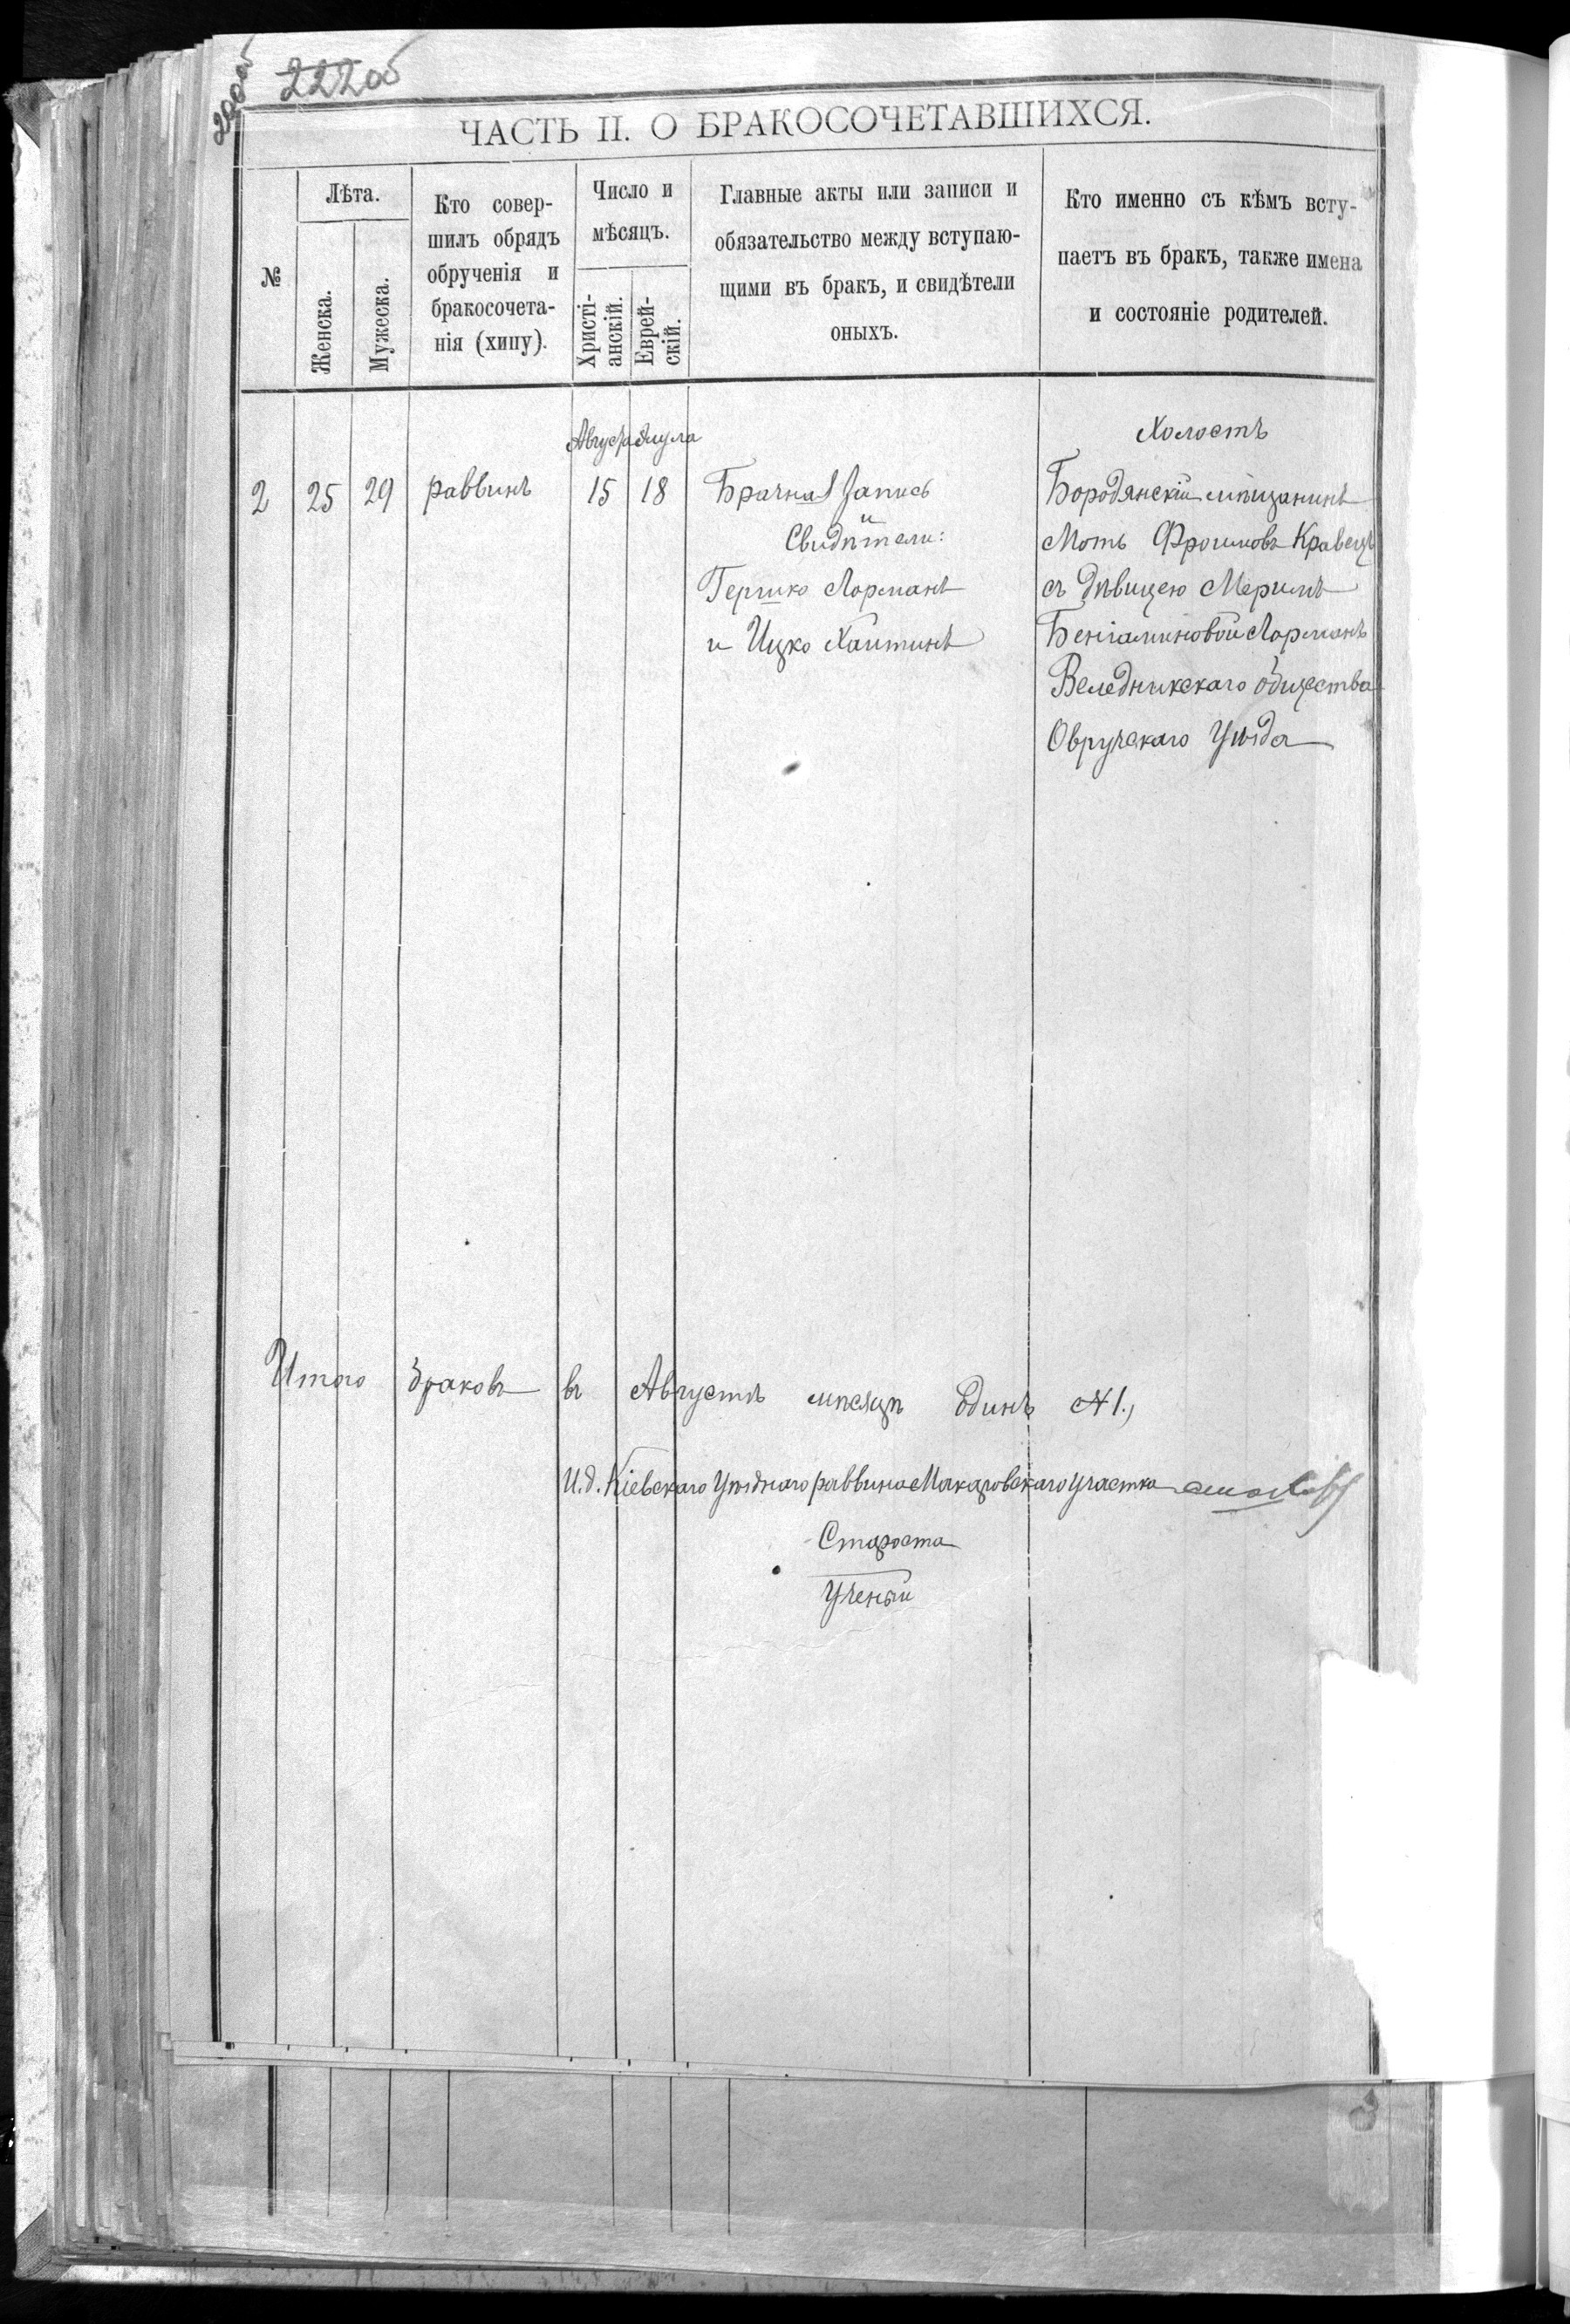 222об
ЧАСТЬ II. О БРАКОСОЧЕТАВШИХСЯ.
№
Лѣта.
Женска.
Мужеска.
Кто совер-
шилъ обрядъ
обрученія и
бракосочета-
нія (хипу).
Число и
мѣсяцъ.
Христі-
анскій.
Еврей-
скій.
Главные акты или записи и
обязательство между вступаю-
щими въ бракъ, и свидѣтели
оныхъ.
Кто именно съ кѣмъ всту-
паетъ въ бракъ, также имена
и состояніе родителей.
Августа Элула
2 25 29 раввинъ 15 18
Брачная Запись
и
Свидѣтели:
Гершко Лорманъ
и Ицко Хаитинъ
Холостъ
Бородянскій мѣщанинъ
Моть Фроимовъ Кравецъ
съ дѣвицею Меримъ
Беніаминовой Лорманъ
Веледникскаго общества
Овручскаго Уѣзда
Итого браковъ въ Августѣ мѣсяцѣ Одинъ №1.,
И.д. Кіевскаго Уѣзднаго раввина Макаровскаго участка
Староста
Ученый